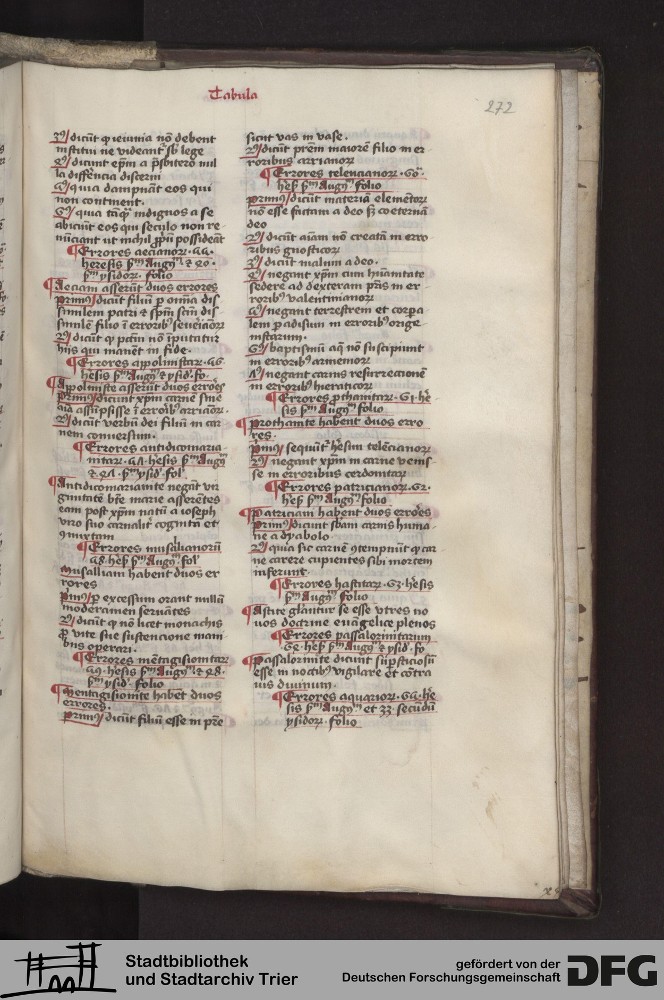 Tabula
272
3us dicūt ꝙ ieiunia nō debent
institui ne videant sb lege
4us dicunt epm a psbitero nul
la differēcia discerni
5us quia dampnāt eos qui
non continent.
6us quia tāq indignos a se
abiciūt eos qui seculo non re
nūciant ut nichil ppͥi possideāt
Errores aecianoꝝ
heresis Augꝰ
ysidoꝝ folio
Aeciani asserūt duos errores
primus dicūt filiū p omnia dis
similem patri et spm scm dis
similē filio ī erroribꝰ
2us dicūt ꝙ pctm nō īputatur
hiis qui manēt in fide.
Errores appolinistaꝝ
hesis Augꝰ et ysid fo
Appoliniste asserūt duos errores
primus dicūt xpm carnē sine
aīa assūpsisse ī erroribꝰ arrianoꝝ
2us dicūt verbū dei filiū in car
nem conuersum.
Errores antidicomaria
nitaꝝ hesis Augꝰ
ysid fol
Antidicomarianite negāt vir
ginitatē bte marie asserētes
eam post xpm natū a ioseph
viro suo carnalit cognitā et
9iunctam
Errores musalianoꝝ
Augꝰ fol
Musalliani habent duos er
rores
primus p excessum orant nullū
moderamen seruātes
2us dicūt ꝙ nō licet monachis
ꝓ vite sue sustentacione mani
bus operari.
Errores mētagisionitaꝝ
hesis Augꝰ
ysid folio
mentagisionite habēt duos
errores.
primus dicūt filiū esse in pre
sicut vas in vase.
2us dicūt prem maiorē filio in er
roribus arrianoꝝ
Errores seleucianoꝝ
hesis Augꝰ folio
primus dicūt materiā elemētoꝝ
nō esse factam a deo sꝫ coeternā
deo
2us dicūt aīam nō creatā in erro
ribus gnosticoꝝ
3us dicūt malum a deo.
4us negant xpm cum hūanitate
sedere ad dexteram pris in er
roribꝰ valentinianoꝝ
5us negant terrestrem et corpa
lem padisum in erroribꝰ orige
nistarum.
6us baptismū aq nō suscipiunt
in erroribꝰ armenioꝝ
negant carnis resurrectionē
in erroribꝰ hieraticoꝝ
Errores prothanitaꝝ he
sis Augꝰ folio
Prothanite habent duos erro
res.
primus sequūt hesim selecianoꝝ
2us negant xpm in carne venis
se in erroribus cerdonitaꝝ
Errores patricianoꝝ
hesis Augꝰ folio
Patriciani habent duos errores
primus dicunt sbam carnis huma
ne a dyabolo
2us quia sic carnē 9tempnūt ꝙ car
ne carere cupientes sibi mortem
inferunt.
Errores hastitaꝝ hesis
Augꝰ folio
Astite gloriantur se esse vtres no
uos doctrine euāgelice plenos
Errores passalorinitarum
hesis Augꝰ et ysid fo
Passalorinite dicunt supsticiosū
esse in noctibꝰ vigilare et cōtra
ius diuinum.
Errores aquarioꝝ he
sis Augꝰ et secūdū
ysidoꝝ folio
Stadtbibliothek
und Stadtarchiv Trier
gefördert von der
Deutschen Forschungsgemeinschaft
DFG